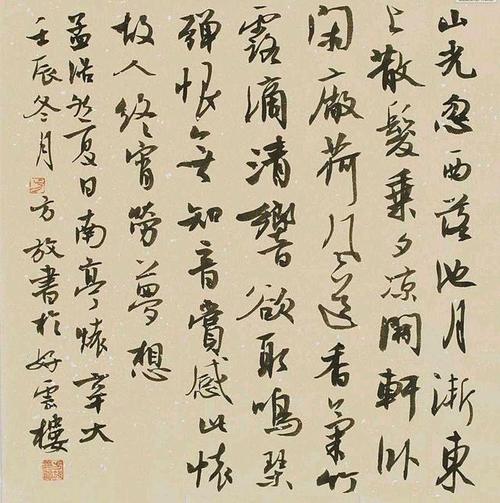 山光忽西落池月漸東
上散髮乘夕凉開軒卧
閑廠荷风送香氣竹
露滴清響欲取鳴琴
彈恨无知音賞感此懷
故人終宵勞夢想
孟浩然夏日南亭懷辛大
壬辰冬月 方放書於好雲樓